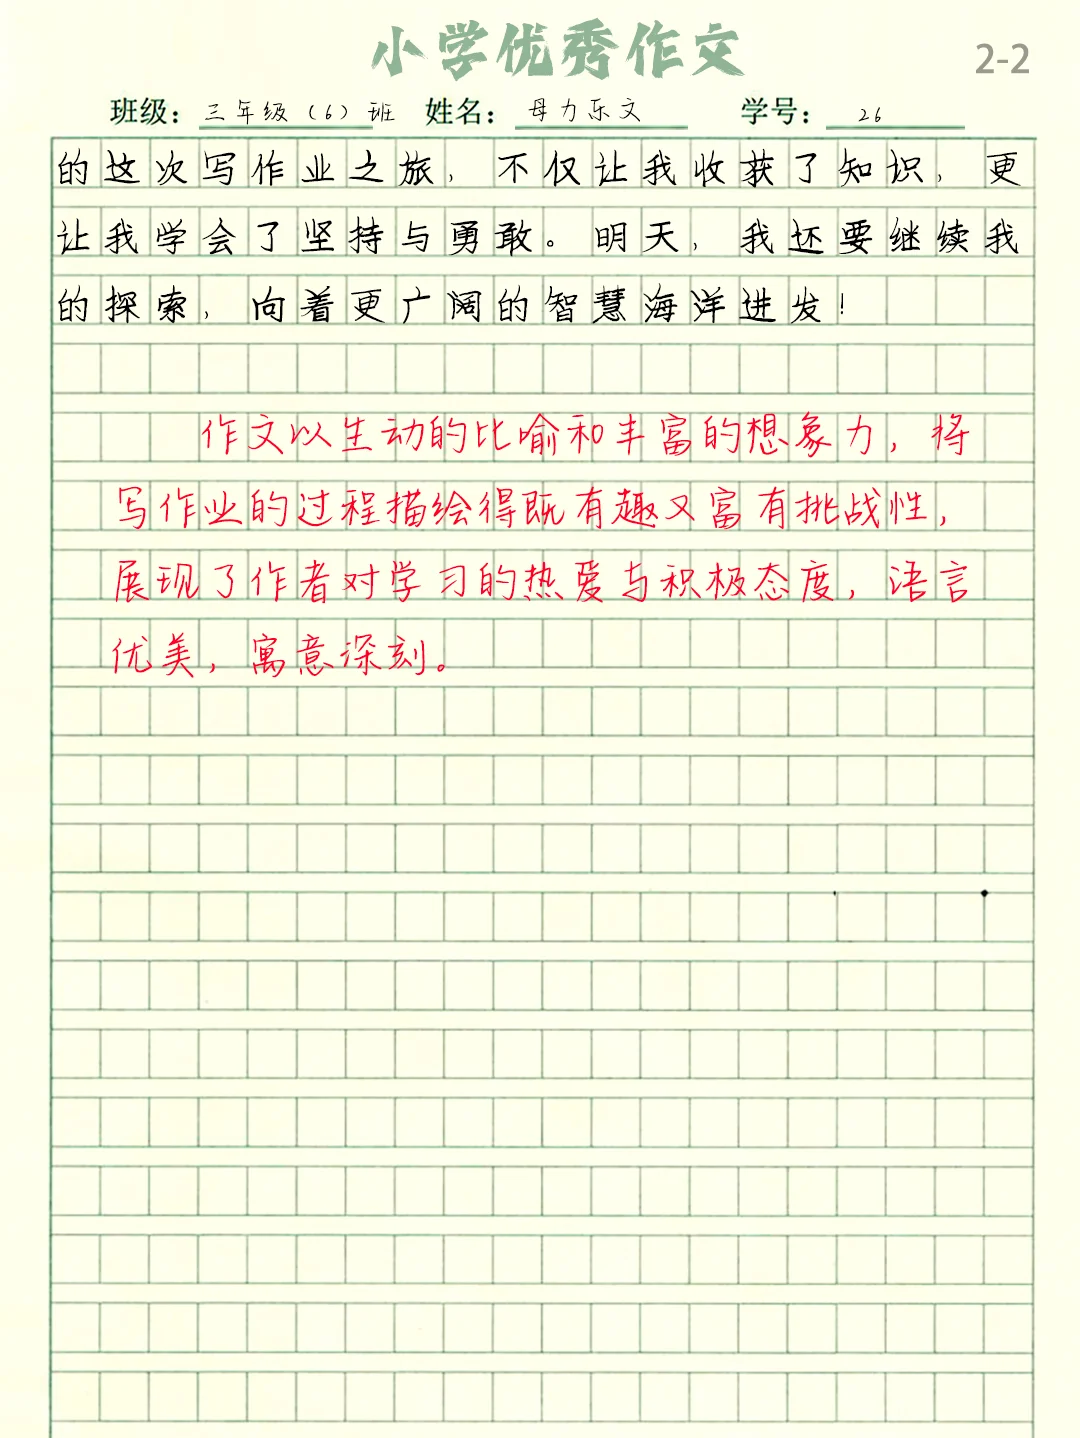 小学优秀作文
2-2
班级：三年级（6）班 姓名：母力乐文 学号：26
的这次写作业之旅，不仅让我收获了知识，更
让我学会了坚持与勇敢。明天，我还要继续我
的探索，向着更广阔的智慧海洋进发！
作文以生动的比喻和丰富的想象力，将
写作业的过程描绘得既有趣又富有挑战性，
展现了作者对学习的热爱与积极态度，语言
优美，寓意深刻。